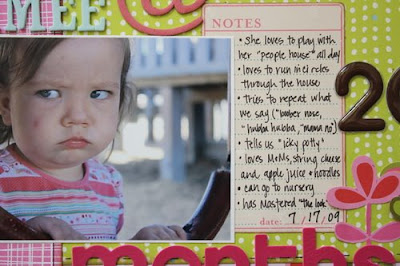 MEE @
NOTES
• she loves to play with
her "people house" all day
• loves to run in circles
through the house
• Tries to repeat what
we say ("boober, nose,
"hubba hubba, "mama no")
• tells us "icky potty"
• loves M&Ms, string cheese
and apple juice & noodles
• can go to nursery
• has mastered "the look"
date: 7/17/09
20
months